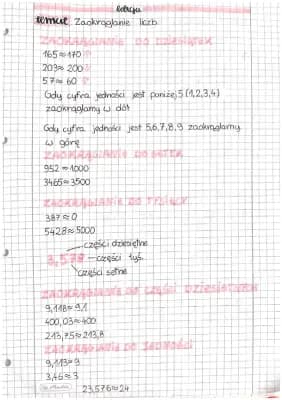 lekcja
temat Zaokrąglanie liczb
ZAOKRĄGLANIE DO DZIESIĄTEK
165≈170
203≈200
57≈60
Gdy cyfra jedności jest poniżej 5 (1,2,3,4)
zaokrąglamy w dół
Gdy cyfra jedności jest 5,6,7,8,9 zaokrąglamy
w górę
ZAOKRĄGLANIE DO SETEK
952≈1000
3465≈3500
ZAOKRĄGLANIE DO TYSIĘCY
387≈0
5428≈5000
części dziesiętne
3,578 części tyś.
części setne
ZAOKRĄGLANIE DO CZĘŚCI DZIESIĘTNYCH
9,118≈9,1
400,03≈400
213,75≈213,8
ZAOKRĄGLANIE DO JEDNOŚCI
9,113≈9
3,46≈3
23,576≈24